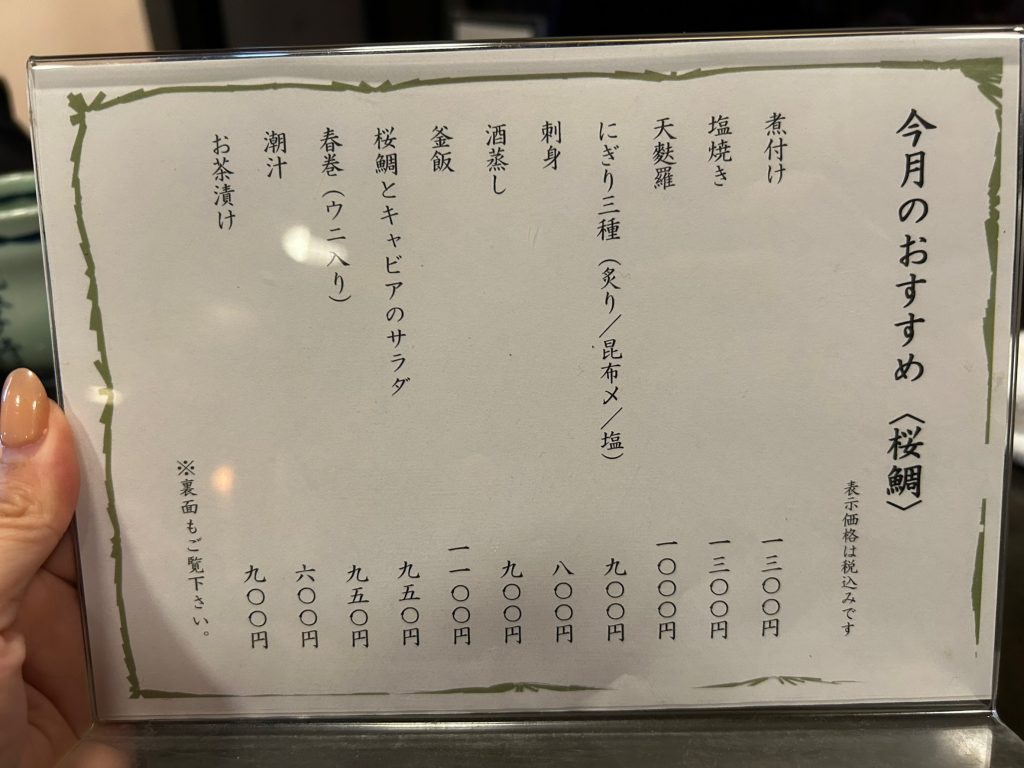 今月のおすすめ〈桜鯛〉
表示価格は税込みです
煮付け 一三〇〇円
塩焼き 一三〇〇円
天麩羅 一〇〇〇円
にぎり三種（炙り／昆布〆／塩） 九〇〇円
刺身 八〇〇円
酒蒸し 九〇〇円
釜飯 一一〇〇円
桜鯛とキャビアのサラダ 九五〇円
春巻（ウニ入り） 九五〇円
潮汁 六〇〇円
お茶漬け 九〇〇円
※裏面もご覧下さい。